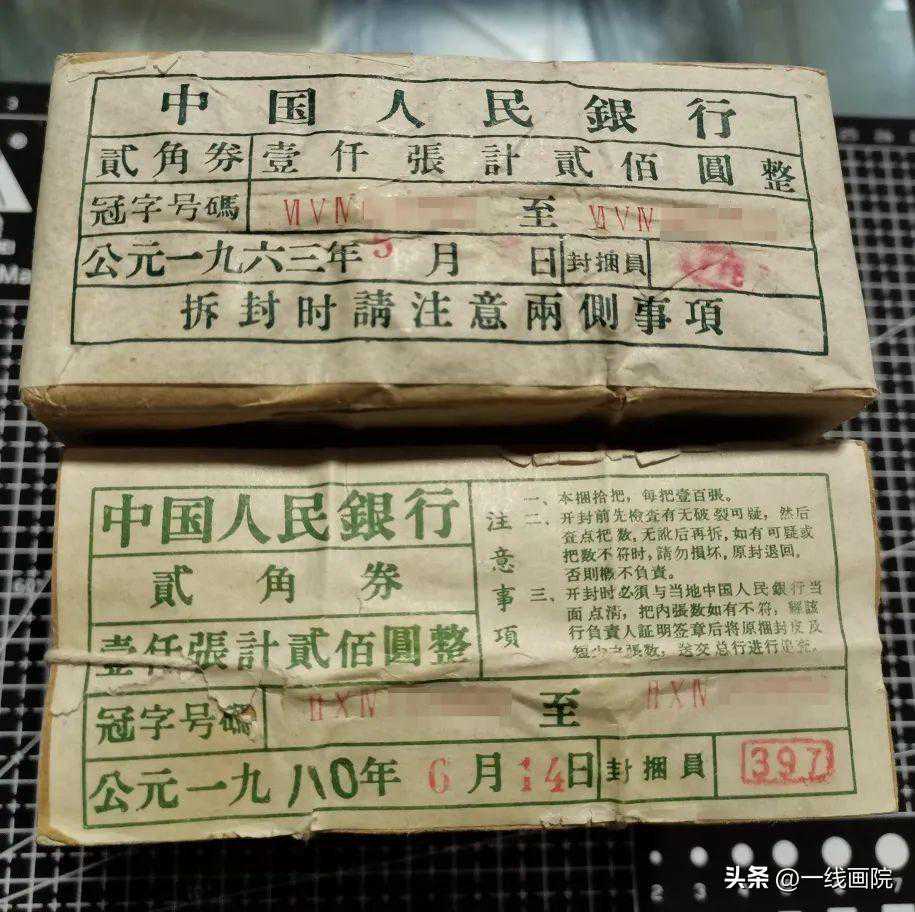 中国人民銀行
貳角券 壹仟張計貳佰圓整
冠字号碼 ⅥⅤⅣ 至 ⅥⅤⅣ
公元一九六三年5月 日 封捆員
拆封时請注意兩側事項
中国人民銀行
貳角券
壹仟張計貳佰圓整
注意事項
一、本捆拾把，每把壹百張。
二、开封前先檢查有无破裂可疑，然后
查点把数，无訛后再拆，如有可疑或
把数不符时，請勿損坏，原封退回。
否則概不負責。
三、开封时必須与当地中国人民銀行当
面点淸，把内張数如有不符，經該
行負責人証明签章后将原捆封皮及
短少之張数，送交总行进行
冠字号碼 ⅡⅩⅣ 至 ⅡⅩⅣ
公元一九八0年6月14日 封捆員 397
头条 @一线画院